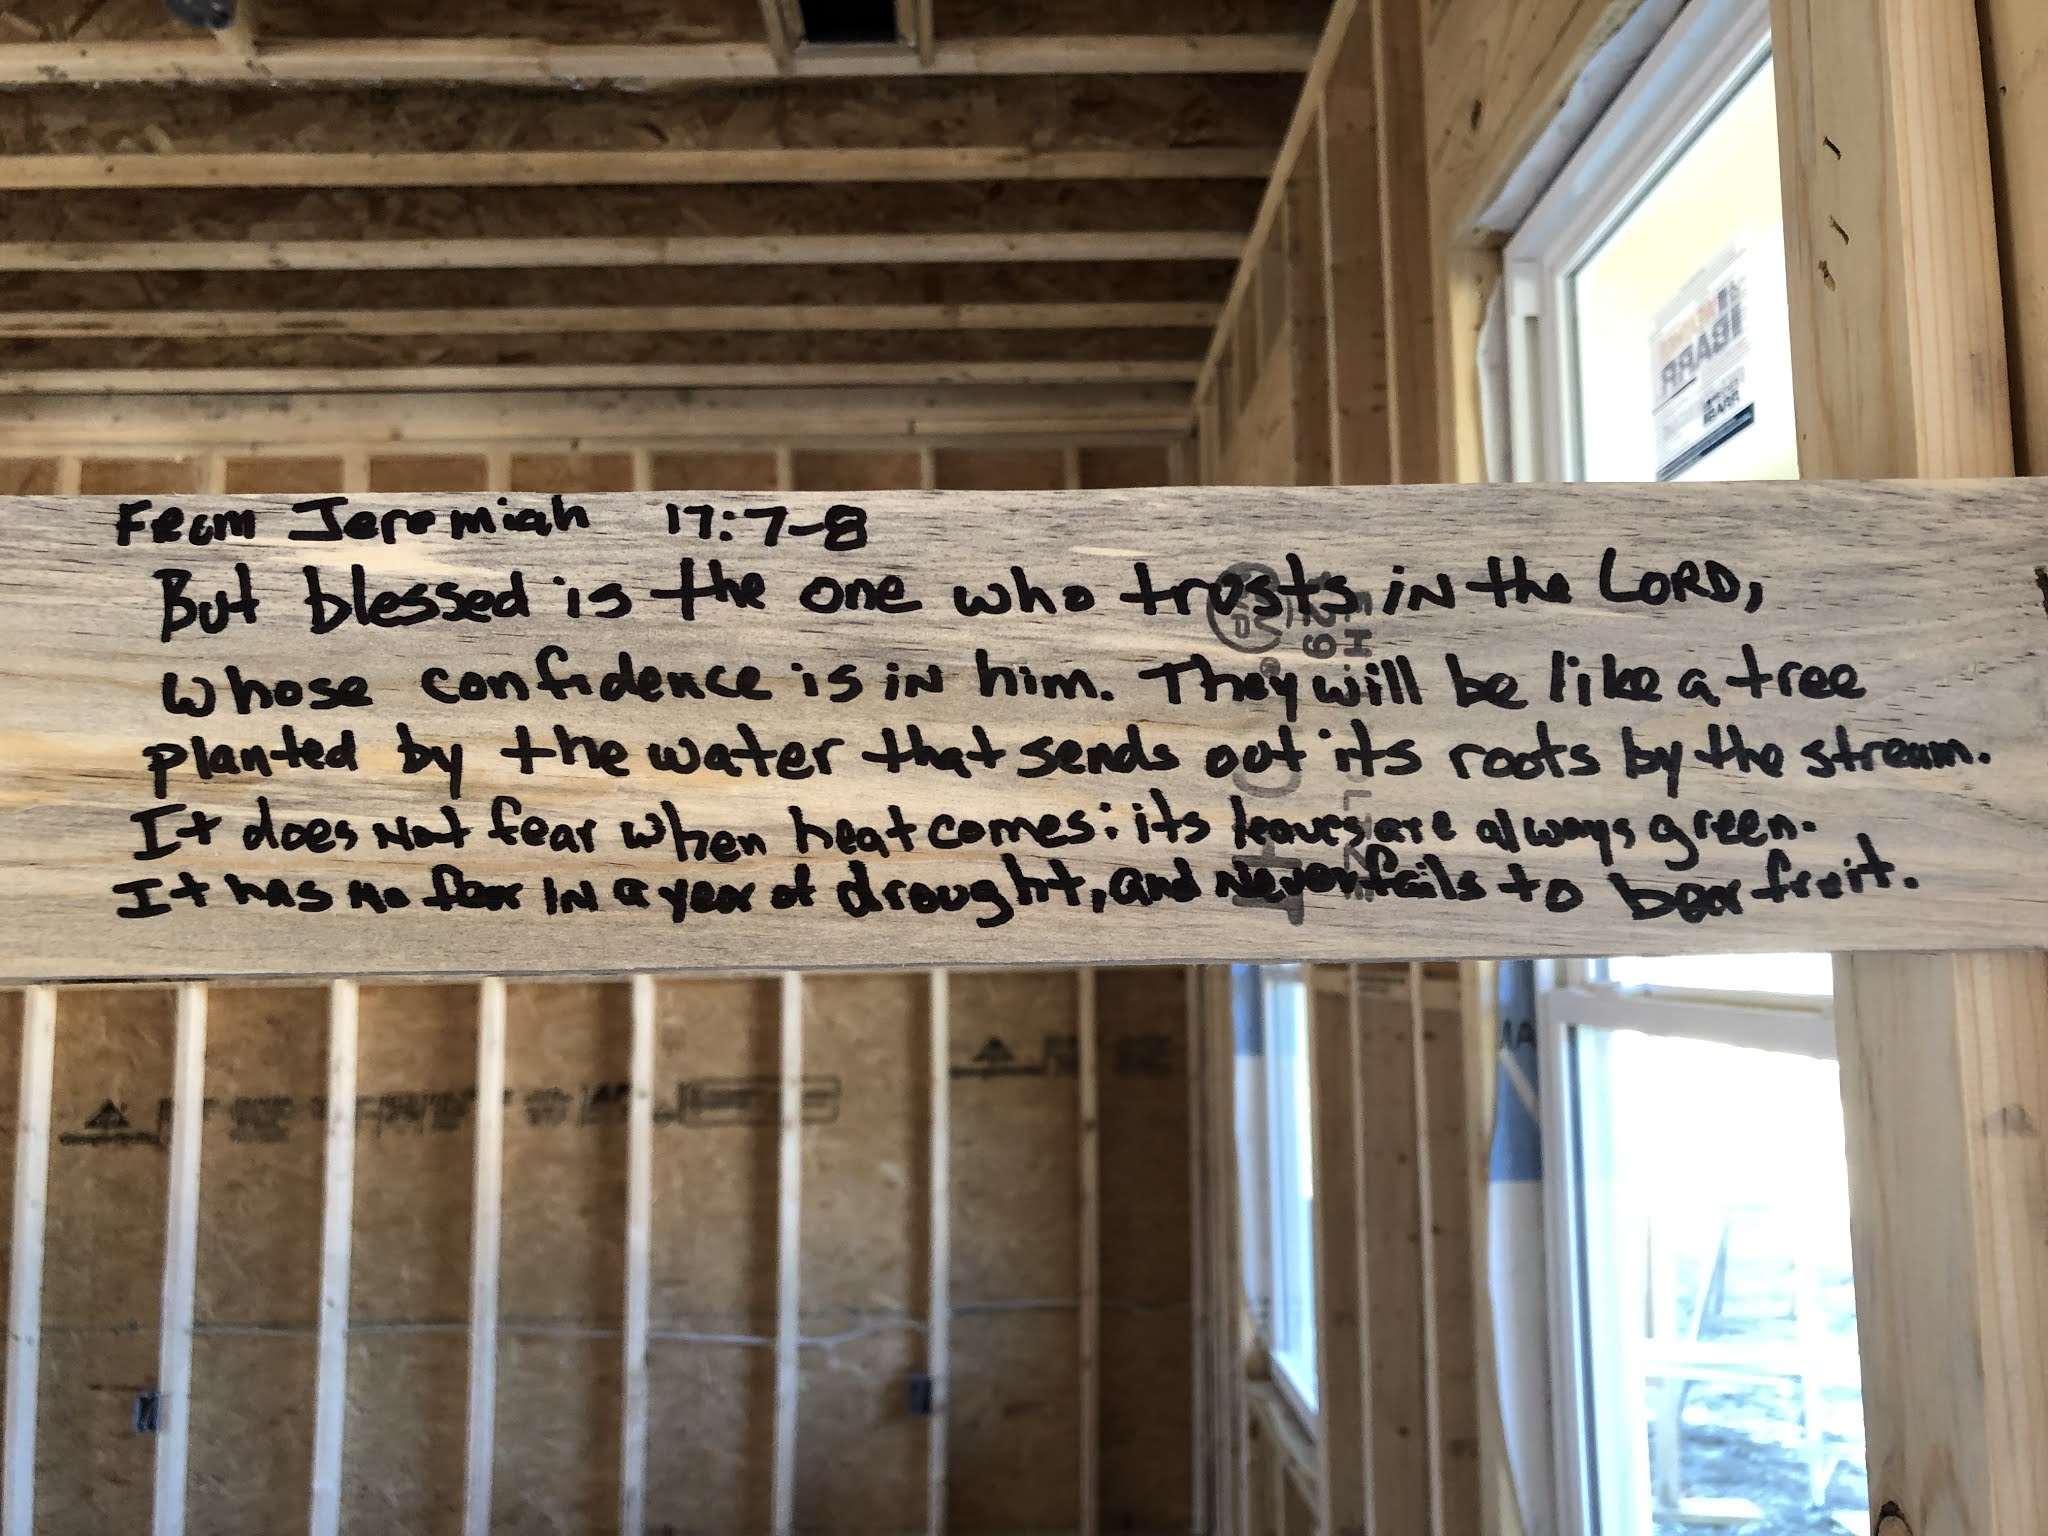 From Jeremiah 17:7-8
But blessed is the one who trusts in the LORD,
whose confidence is in him. They will be like a tree
planted by the water that sends out its roots by the stream.
It does not fear when heat comes; its leaves are always green.
It has no fear in a year of drought, and never fails to bear fruit.